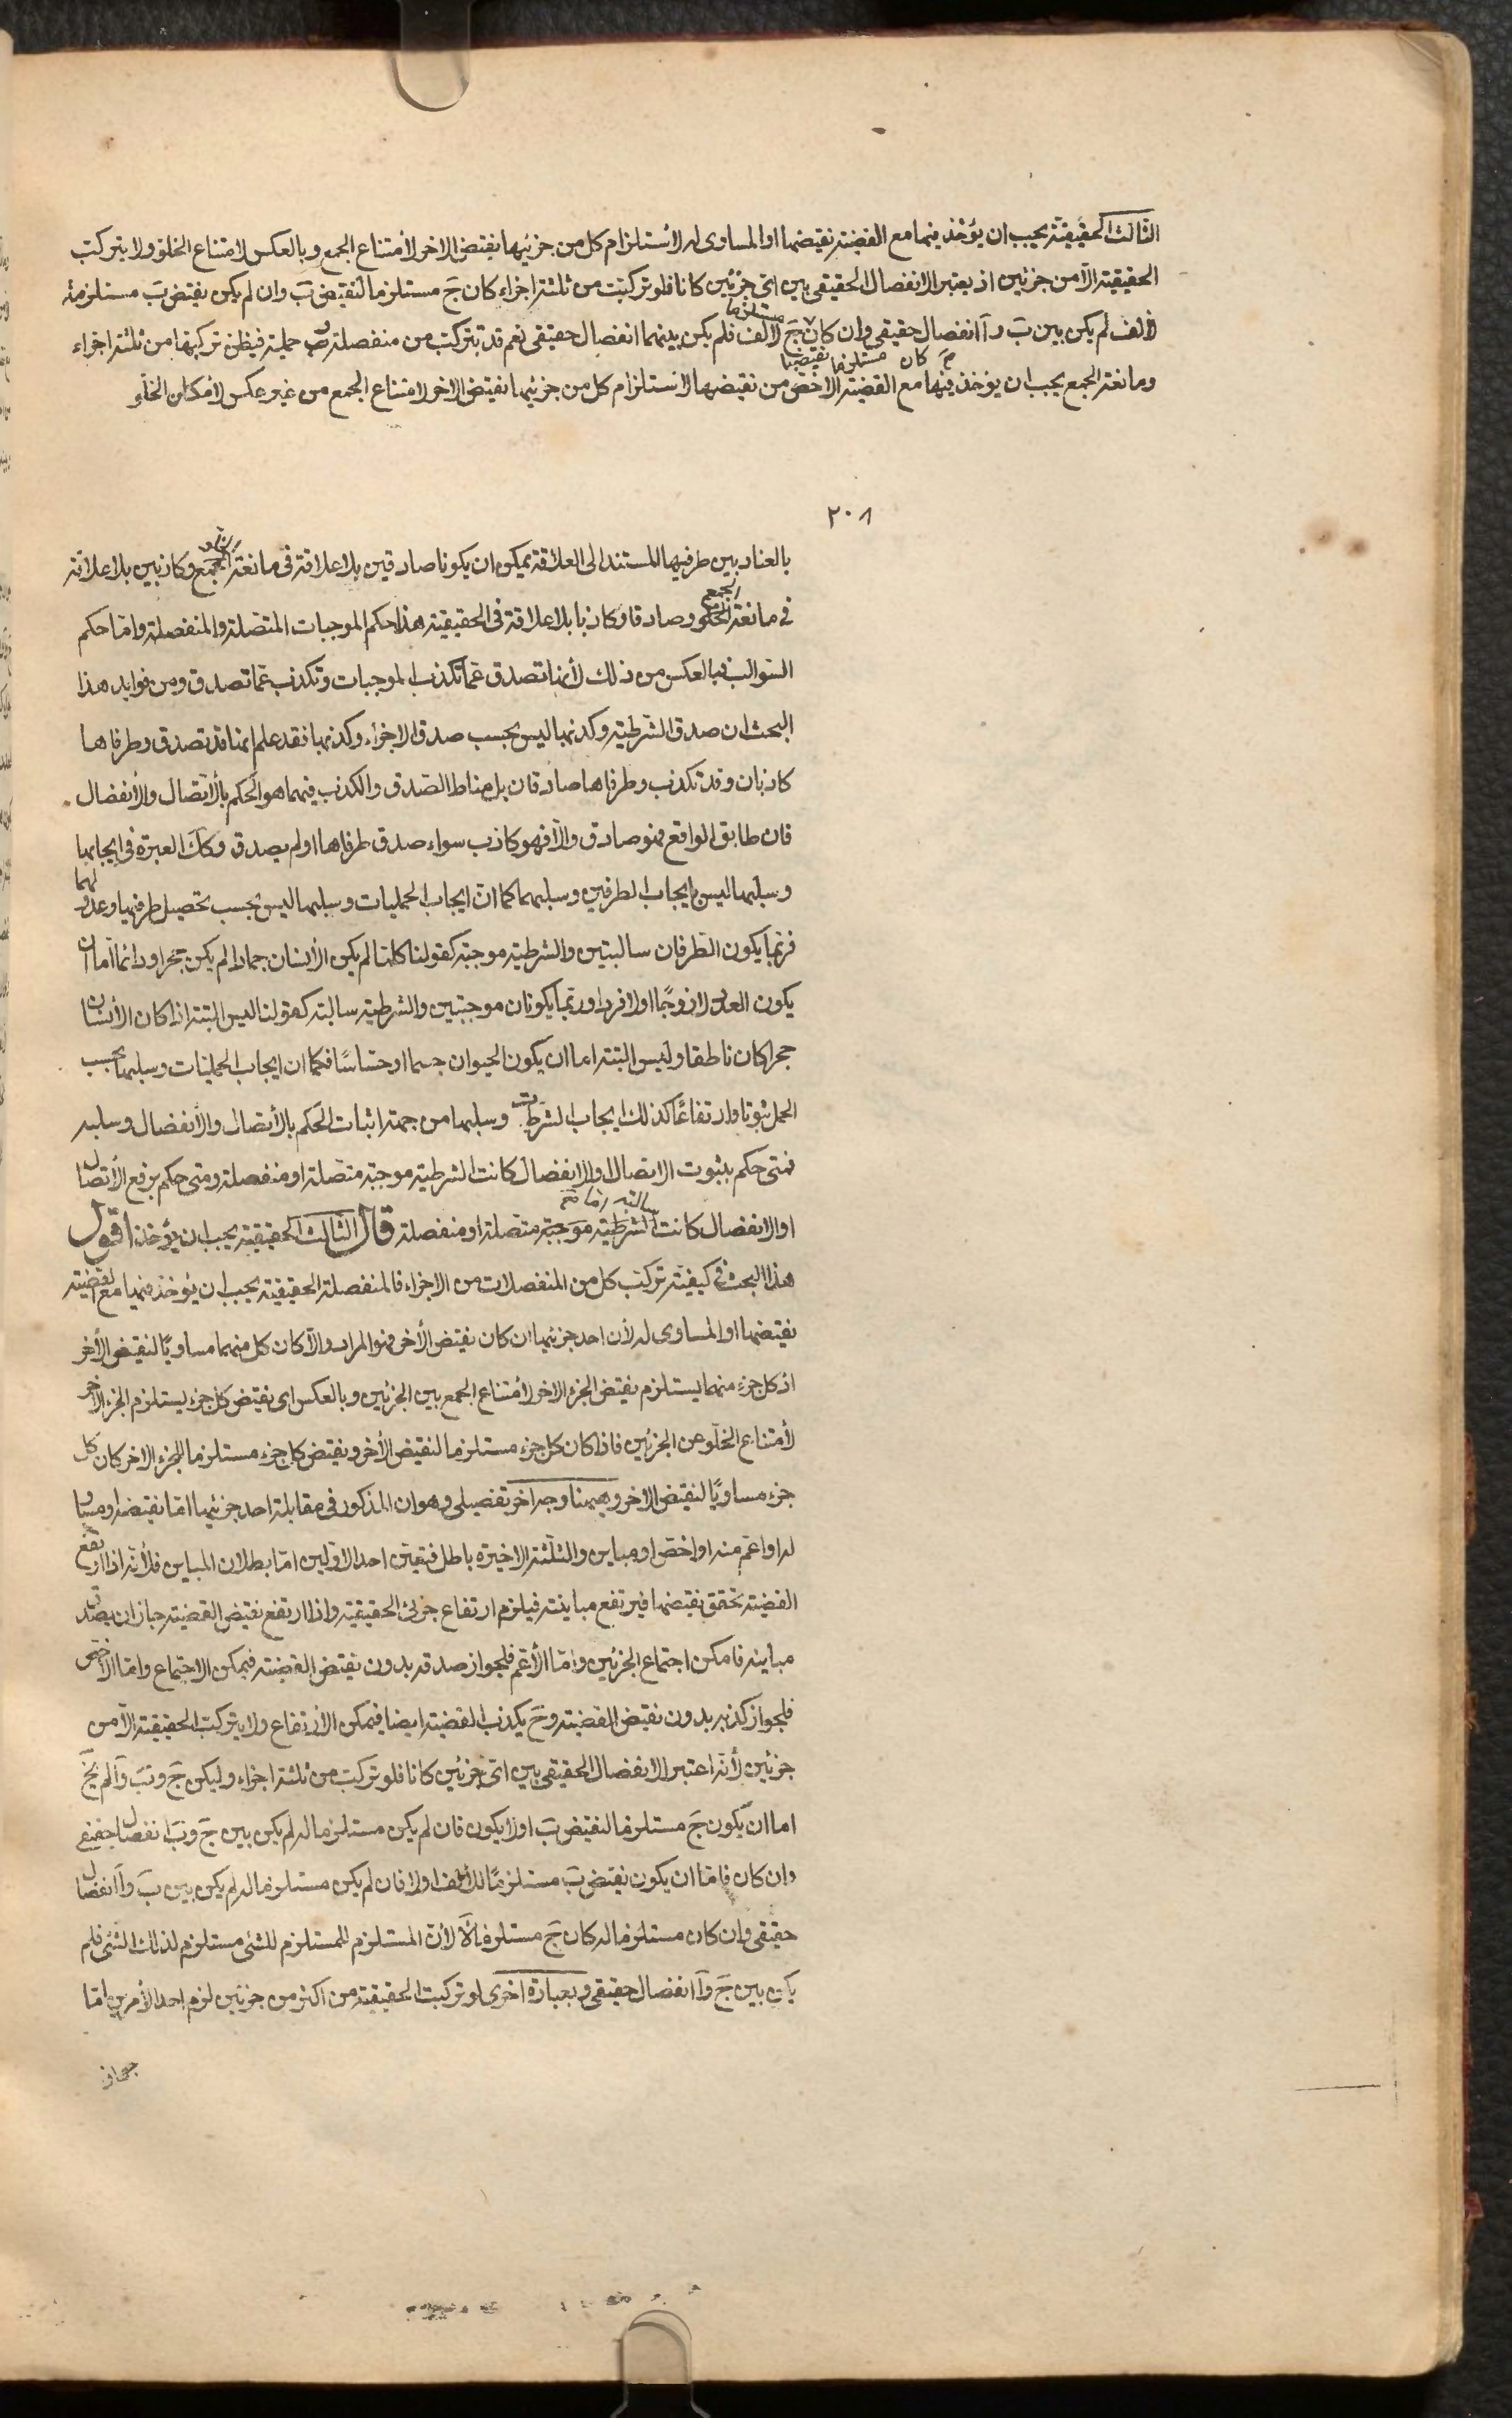 الثالث الحقيقيّة يجب ان يؤخذ فيها مع القضيّة نقيضها او المساوى له لاستلزام كل من جزئيها نقيض الاخر لامتناع الجمع وبالعكس لامتناع الخلو ولا يتركب
الحقيقية الّا من جزئين اذ يعتبر الانفصال الحقيقى بين اىّ جزئين كانا فلو تركّبت من ثلثة اجزاء كان جَ مستلزما لنقيض بَ وان لم يكن نقيض بَ مستلزمه
لألف لم يكن بين بَ وآ انفصال حقيقى وان كان مستلزما جَ لالف فلم يكن بينهما انفصال حقيقى نعم قد تتركّب من منفصلة و حملية فيظن تركيبها من ثلثة اجزاء
مَ كان مستلزما نقيضها
ومانعة الجمع يجب ان يؤخذ فيها مع القضيّة الاخصّ من نقيضها لاستلزام كل من جزئيها نقيض الاخر لامتناع الجمع من غير عكس لامكان الخلو
٢٠٨
بالعناد بين طرفيها المستند الى العلاقة يمكن ان يكونا صادقين بلا علاقة فى مانعة الجمع الخلو وكاذبين بلا علاقة
فى مانعة الخلو الجمع وصادقا وكاذبا بلا علاقة فى الحقيقية هذا حكم الموجبات المتصلة والمنفصلة وامّا حكم
السّوالب فبالعكس من ذلك لأنها تصدق عمّا تكذب الموجبات وتكذب عمّا تصدق ومن فوايد هذا
البحث ان صدق الشّرطية وكذبها ليس بحسب صدق الاجزاء وكذبها فقد علم انها قد تصدق وطرفاها
كاذبان وقد تكذب وطرفاها صادقان بل مناط الصّدق والكذب فيهما هو الحكم بالأتّصال والأنفصال
فان طابق الواقع فهو صادق والّا فهو كاذب سواء صدق طرفاها او لم يصدق وكك العبرة فى ايجابها
وسلبها ليس بايجاب الطرفين وسلبهما كما انّ ايجاب الحمليات وسلبها ليس بحسب تحصيل طرفيها وعدولهما
فربّما يكون الطّرفان سالبتين والشرطية موجبة كقولنا كلّما لم يكن الأنسان جمادا لم يكن حجرا ودائما امّا ان
يكون العدد لا زوجًا او لا فردا وربّما يكونان موجبتين والشرطية سالبة كقولنا ليس البتة اذا كان الأنسان
حجرا كان ناطقا وليس البتة اما ان يكون الحيوان جسما او حسّاسًا فكما ان ايجاب الحمليات وسلبها بحسب
الحمل ثبوتا وارتفاعًا كذلك ايجاب الشرطيات وسلبها من جهة اثبات الحكم بالأتصال والأنفصال وسلبه
فمتى حكم بثبوت الاتصال والانفصال كانت الشرطية موجبة متّصلة او منفصلة ومتى حكم برفع الأتصال
سالبة
او الانفصال كانت الشرطية موجبة متصلة او منفصلة قال الثالث الحقيقية يجب ان يؤخذ اقول
هذا البحث فى كيفية تركّب كل من المنفصلات من الاجزاء فالمنفصلة الحقيقية يجب ان يؤخذ فيها مع القضية
نقيضها او المساوى له لأن احد جزئيها ان كان نقيض الأخر فهو المراد والّا كان كل منهما مساويًا لنقيض الأخر
اذ كل جزء منهما يستلزم نقيض الجزء الاخر لأمتناع الجمع بين الجزئين وبالعكس اى نقيض كل جزء يستلزم الجزء الاخر
لأمتناع الخلّو عن الجزئين فاذا كان كل جزء مستلزما لنقيض الأخر ونقيض كل جزء مستلزما للجزء الاخر كان كل
جزء مساويًا لنقيض الاخر وههنا وجه اخر تفصيلى وهو ان المذكور فى مقابلة احد جزئيها امّا نقيضه او مساو
له او اعمّ منه او اخصّ او مباين والثلثة الاخيرة باطل فتعيّن احد الاوّلين امّا بطلان المباين فلأنّه اذا ارتفع
القضية تحقق نقيضها فيرتفع مباينة فيلزم ارتفاع جزئى الحقيقية واذا ارتفع نقيض القضية جاز ان يصدق
مباينه فامكن اجتماع الجزئين وامّا الأعّم فلجواز صدقه بدون نقيض القضية فيمكن الاجتماع وامّا الاخصّ
فلجواز كذبه بدون نقيض القضية وحَ يكذب القضية ايضا فيمكن الارتفاع ولا يتركّب الحقيقية الّا من
جزئين لأنّه اعتبر الانفصال الحقيقى بين اىّ جزئين كانا فلو تركبّ من ثلثة اجزاء وليكن جَ وبَ وآ لم يخ
اما ان يكون جَ مستلزما لنقيض بَ او لا يكون فان لم يكن مستلزما له لم يكن بين جَ وبَ انفصال حقيقى
وان كان فامّا ان يكون نقيض بَ مستلزمًا لألف او لا فان لم يكن مستلزما له لم يكن بين بَ وآ انفصال
حقيقى وان كان مستلزما له كان جَ مستلزما لآ لأنّ المستلزم للمستلزم للشئ مستلزم لذلك الشئ فلم
يكن بين جَ وآ انفصال حقيقى وبعبارة اخرى لو تركبت الحقيقية من اكثر من جزئين لزم احد الأمرين امّا
جواز